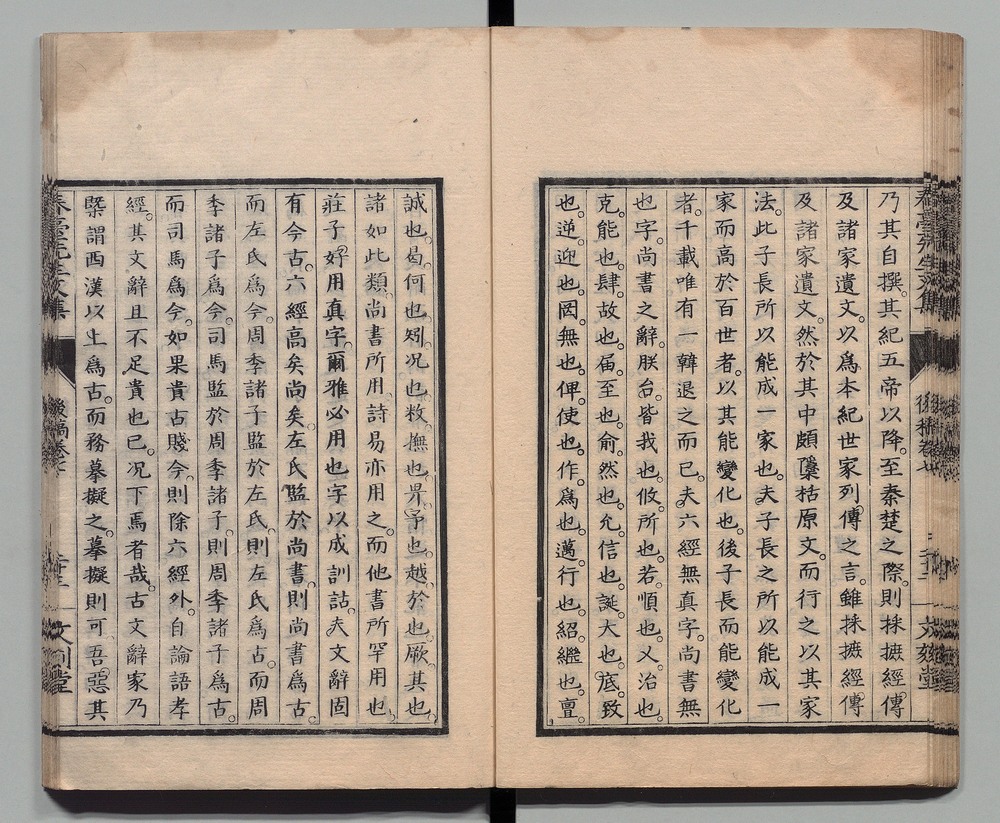 乃其自撰。其紀五帝以降。至秦楚之際。則採摭經傳
及諸家遺文。以爲本紀世家列傳之言。雖採摭經傳
及諸家遺文。然於其中頗櫽栝原文。而行之以其家
法。此子長所以能成一家也。夫子長之所以能成一
家而高於百世者。以其能變化也。後子長而能變化
者。千載唯有一韓退之而已。夫六經無真字。尚書無
也字。尚書之辭。朕台。皆我也。攸。所也。若。順也。乂。治也。
克。能也。肆。故也。届。至也。俞。然也。允。信也。誕。大也。底。致
也。逆。迎也。罔。無也。俾。使也。作。爲也。邁。行也。紹。繼也。亶。
誠也。曷。何也。矧。况也。敉。撫也。畀。予也。越。於也。厥。其也。
諸如此類。尚書所用。詩易亦用之。而他書所罕用也。
莊子好用真字。爾雅必用也字以成訓詁。夫文辭固
有今古。六經高矣尚矣。左氏監於尚書。則尚書爲古。
而左氏爲今。周季諸子監於左氏。則左氏爲古。而周
季諸子爲今。司馬監於周季諸子。則周季諸子爲古。
而司馬爲今。如果貴古賤今。則除六經外。自論語孝
經。其文辭且不足貴也已。况下焉者哉。古文辭家乃
槩謂西漢以上爲古。而務摹擬之。摹擬則可。吾惡其
春臺先生文集
後稿卷七
文刻堂